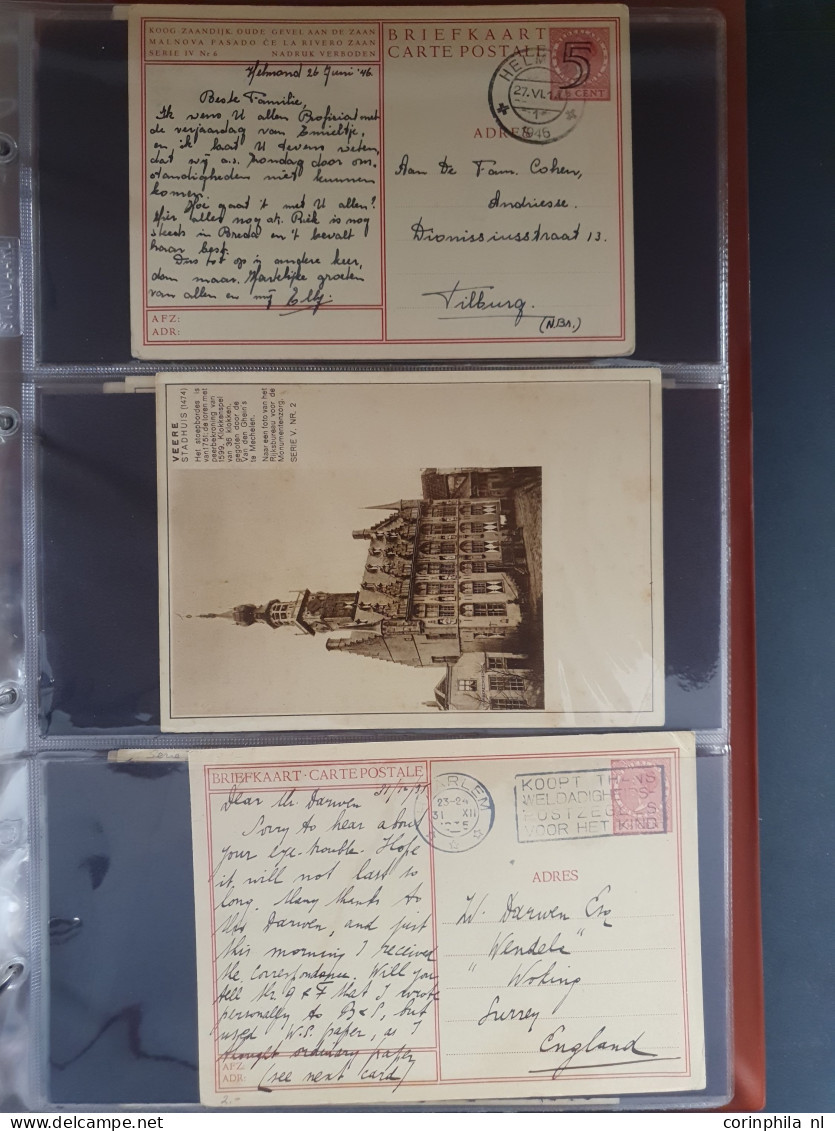 KOOG ZAANDIJK, OUDE GEVEL AAN DE ZAAN
MALNOVA FASADO ĈE LA RIVERO ZAAN
SERIE IV Nr 6 NADRUK VERBODEN
Helmond 26 Juni '46
Beste Familie,
Ik wens U allen Profisiat met
de verjaardag van Emieltje,
en ik laat U tevens weten,
dat wij a.s. Zondag door om.
standigheden niet kunnen
komen.
Hoe gaat 't met U allen?
Hier alles nog ok. Riek is nog
steeds in Breda en 't bevalt
haar best.
Dus tot op 'n andere keer,
dan maar. Hartelijke groeten
van allen en mij Elly.
AFZ:
ADR:
BRIEFKAART
CARTE POSTALE
5
CENT
HELM
27.VI.1
1
1946
ADRES
Aan De Fam. Cohen,
Andriesse.
Dionissiusstraat 13.
Tilburg.
(N.Br.)
VEERE
STADHUIS (1474)
Het stoepbordes is
van 1751; de toren met
peerbekroning van
1599. Klokkenspel
van 36 klokken,
gegoten door de
Van den Ghein's
te Mechelen.
Naar een foto van het
Rijksbureau voor de
Monumentenzorg.
SERIE V. NR. 2
BRIEFKAART · CARTE POSTALE
31/12/35
Dear Mr. Darwen
Sorry to hear about
your eye-trouble. Hope
it will not last so
long. Many thanks to
Mrs Darwen, and just
this morning I received
the correspondance. Will you
tell Mr. G & F that I wrote
personally to B & S, but
used W.S. paper, as I
thought ordinary paper
(see next card)
AFZ:
ADR:
2.-
ARLEM
23-24
31 XII
5
KOOPT THANS
WELDADIGHEIDS-
POSTZEGELS
VOOR HET KIND
ADRES
W. Darwen Esq
"Wendela"
Woking
Surrey
England
www.corinphila.nl